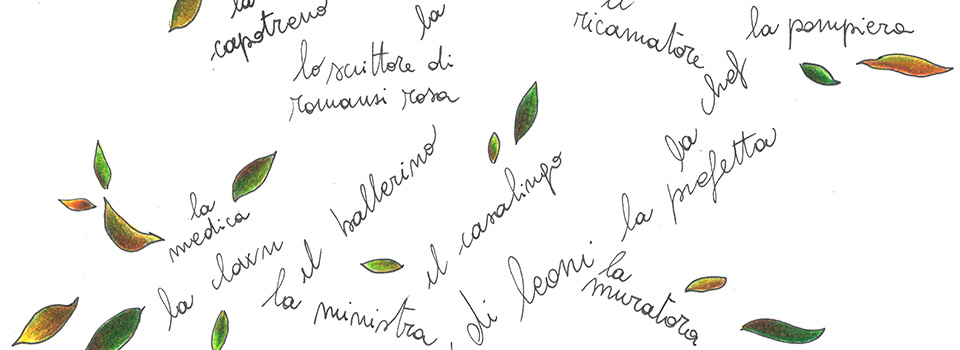 la
capotreno
la
il
ricamatore
la pompiera
lo scrittore di
romanzi rosa
la chef
il ballerino
il casalingo
la profetta
la
medica
la
la ministra
di leoni
la
muratora